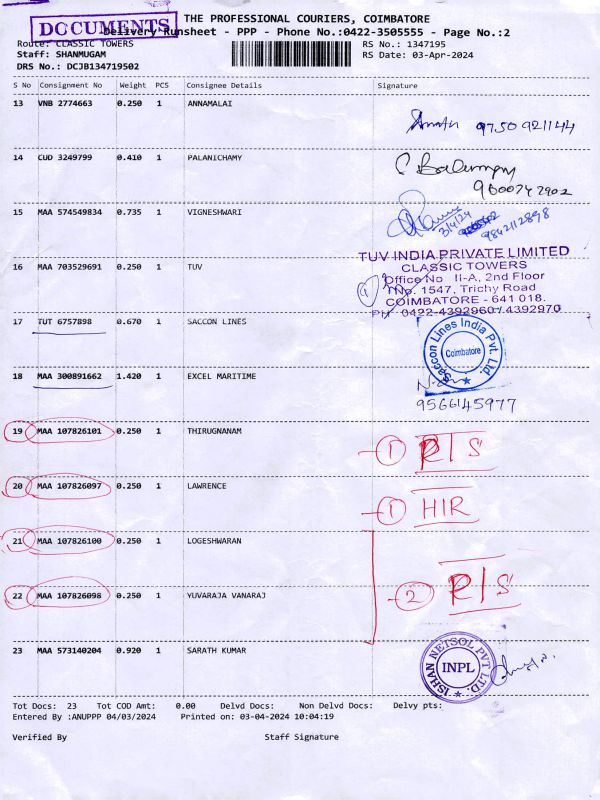 DOCUMENTS
THE PROFESSIONAL COURIERS, COIMBATORE
Delivery Runsheet - PPP - Phone No.:0422-3505555 - Page No.:2
Route: CLASSIC TOWERS
RS No.: 1347195
Staff: SHANMUGAM
RS Date: 03-Apr-2024
DRS No.: DCJB134719502
S No Consignment No Weight PCS Consignee Details Signature
13 VNB 2774663 0.250 1 ANNAMALAI
9750 921144
14 CUD 3249799 0.410 1 PALANICHAMY
9600747902
15 MAA 574549834 0.735 1 VIGNESHWARI
3/4/24
9842112898
16 MAA 703529691 0.250 1 TUV
TUV INDIA PRIVATE LIMITED
CLASSIC TOWERS
Office No II-A, 2nd Floor
No. 1547, Trichy Road
COIMBATORE - 641 018.
PH 0422-4392960 / 4392970
1
17 TUT 6757898 0.670 1 SACCON LINES
Saccon Lines India Pvt. Ltd.
Coimbatore
18 MAA 300891662 1.420 1 EXCEL MARITIME
9566145977
19 MAA 107826101 0.250 1 THIRUGNANAM
1 R/S
20 MAA 107826097 0.250 1 LAWRENCE
1 HIR
21 MAA 107826100 0.250 1 LOGESHWARAN
2 R/S
22 MAA 107826098 0.250 1 YUVARAJA VANARAJ
23 MAA 573140204 0.920 1 SARATH KUMAR
ISHAN NETSOL PVT LTD
INPL
Tot Docs: 23 Tot COD Amt: 0.00 Delvd Docs: Non Delvd Docs: Delvy pts:
Entered By :ANUPPP 04/03/2024 Printed on: 03-04-2024 10:04:19
Verified By Staff Signature